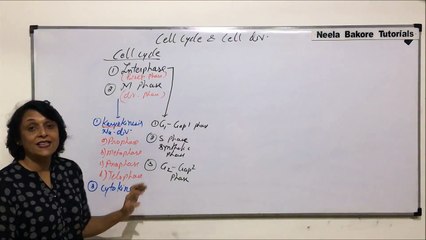 Neela Bakore Tutorials
Cell Cycle & Cell div.
Cell cycle
① Interphase
② M Phase
(div. phase)
① Karyokinesis
Nu. div.
a) Prophase
b) Metaphase
c) Anaphase
d) Telophase
② Cytokine
① G₁ - Gap 1 phase
② S phase
Synthetic
Phase
③ G₂ - Gap 2
Phase